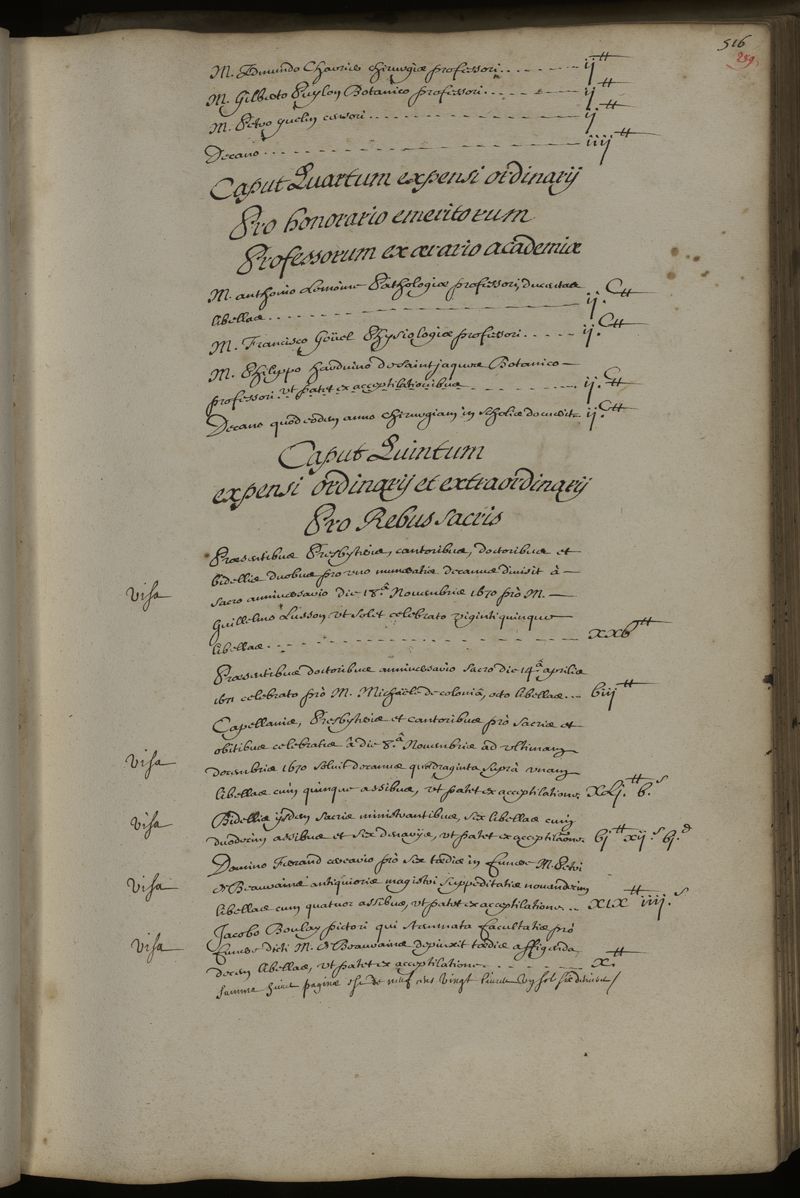 516
259
M. Edmundo Chavrie chirurgiæ professori . . . . . ij ₶
M. Gilberto Puylon Botanico professori . . . . . ij ₶
M. Petro quelin censori . . . . . ij ₶
Decano . . . . . iiij ₶
Caput Quartum expensi ordinarij
Pro honorario emeritorum
Professorum ex ærario academiæ
M. anthonio Lemoine Pathologiæ professori, ducentæ
libellæ . . . . . ij. C ₶
M. Francisco Goüel Physiologiæ professori . . . . . ij. C ₶
M. Philippo harduino de Saint jaques Botanico
professori. vt patet ex acceptilationibus . . . . . ij. C ₶
Decano quod eodem anno chirurgiam in scholis docuerit. ij. C ₶
Caput Quintum
expensi ordinarij et extraordinarij
Pro Rebus sacris
Præsentibus Presbyteris, cantoribus, doctoribus et
bidellis duobus pro vno numeratis decanus divisit à
visa
sacro anniversario die 18.ª Novembris 1670 pro M.
Guillelmo Lusson vt solet celebrato viginti quinque
libellas . . . . . xxv ₶
Præsentibus doctoribus anniversario sacro die 14.ª aprilis
1671 celebrato prò M. Michaële de coloniâ, octo libellas . . . viij ₶
Capellanis, Presbyteris et cantoribus prò sacris et
obitibus celebratis â die 8.ª Novembris ad vltimam
visa
decembris 1670 soluit decanus quadraginta suprà vnam
libellas cum quinque assibus, vt patet ex acceptilatione. xLj. ₶ v. s
visa
Bidellis ijsdem sacris ministrantibus, sex libellas cum
duodecim assibus et sex denarijs, vt patet ex acceptilâone. vj ₶ xij. s vj. d
Domino Ferrand cereario prò sex tædis in funere M. Petri
visa
de Beauvains antiquioris magistri suppeditatis novemdecim
libellas cum quatuor assibus, vt patet ex acceptilatione . . xix ₶ iiij. s
Jacobo Boulay pictori qui stemmata facultatis prò
visa
funere dicti M. de Beauvains depinxit tædis affigenda,
decem libellas, vt patet ex acceptilatione . . . . . x. ₶